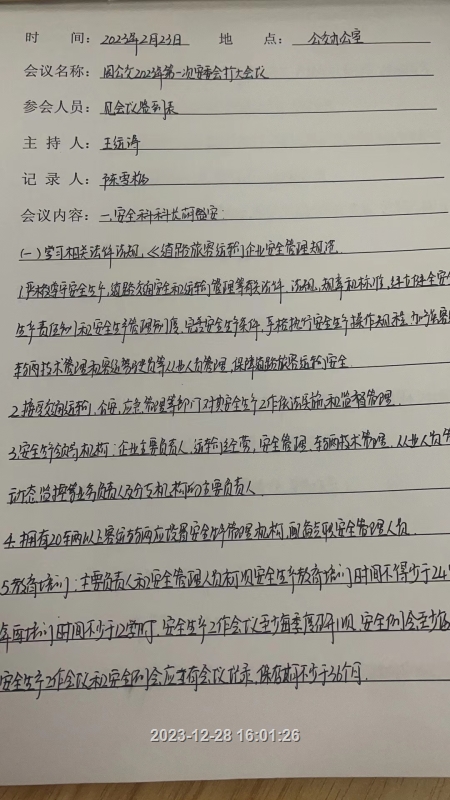 时 间：2023年2月23日 地 点：公交办公室
会议名称：公交2023年第一次安委会扩大会议
参会人员：见会议签到表
主 持 人：王
记 录 人：陈雪梅
会议内容：一.安全科科长
(一)学习相关法律法规，《道路旅客运输企业安全管理规范.
1.严格遵守安全生产,道路交通安全和运输管理等有关法律、法规,规章和标准,建立健全安全
生产责任制和安全生产管理制度,完善安全生产条件,严格执行安全生产操作规程,加强客运
车辆技术管理和客运驾驶员等从业人员管理,保障道路旅客运输安全.
2.接受交通运输、公安、应急管理等部门对其安全生产工作依法实施和监督管理.
3.安全生产领导机构:企业主要负责人,运输经营,安全管理、车辆技术管理、从业人员管
动态监控等业务负责人及分支机构的主要负责人.
4.拥有20辆以上客运车辆应设置安全生产管理机构,配备专职安全管理人员.
5.教育培训:主要负责人和安全管理人员初次安全生产教育培训时间不得少于24学
年再培训时间不少于12学时,安全生产工作会议至少每季度召开1次,安全例会至少每
安全生产工作会议和安全例会应当有会议记录,保存期不少于36个月.
2023-12-28 16:01:26